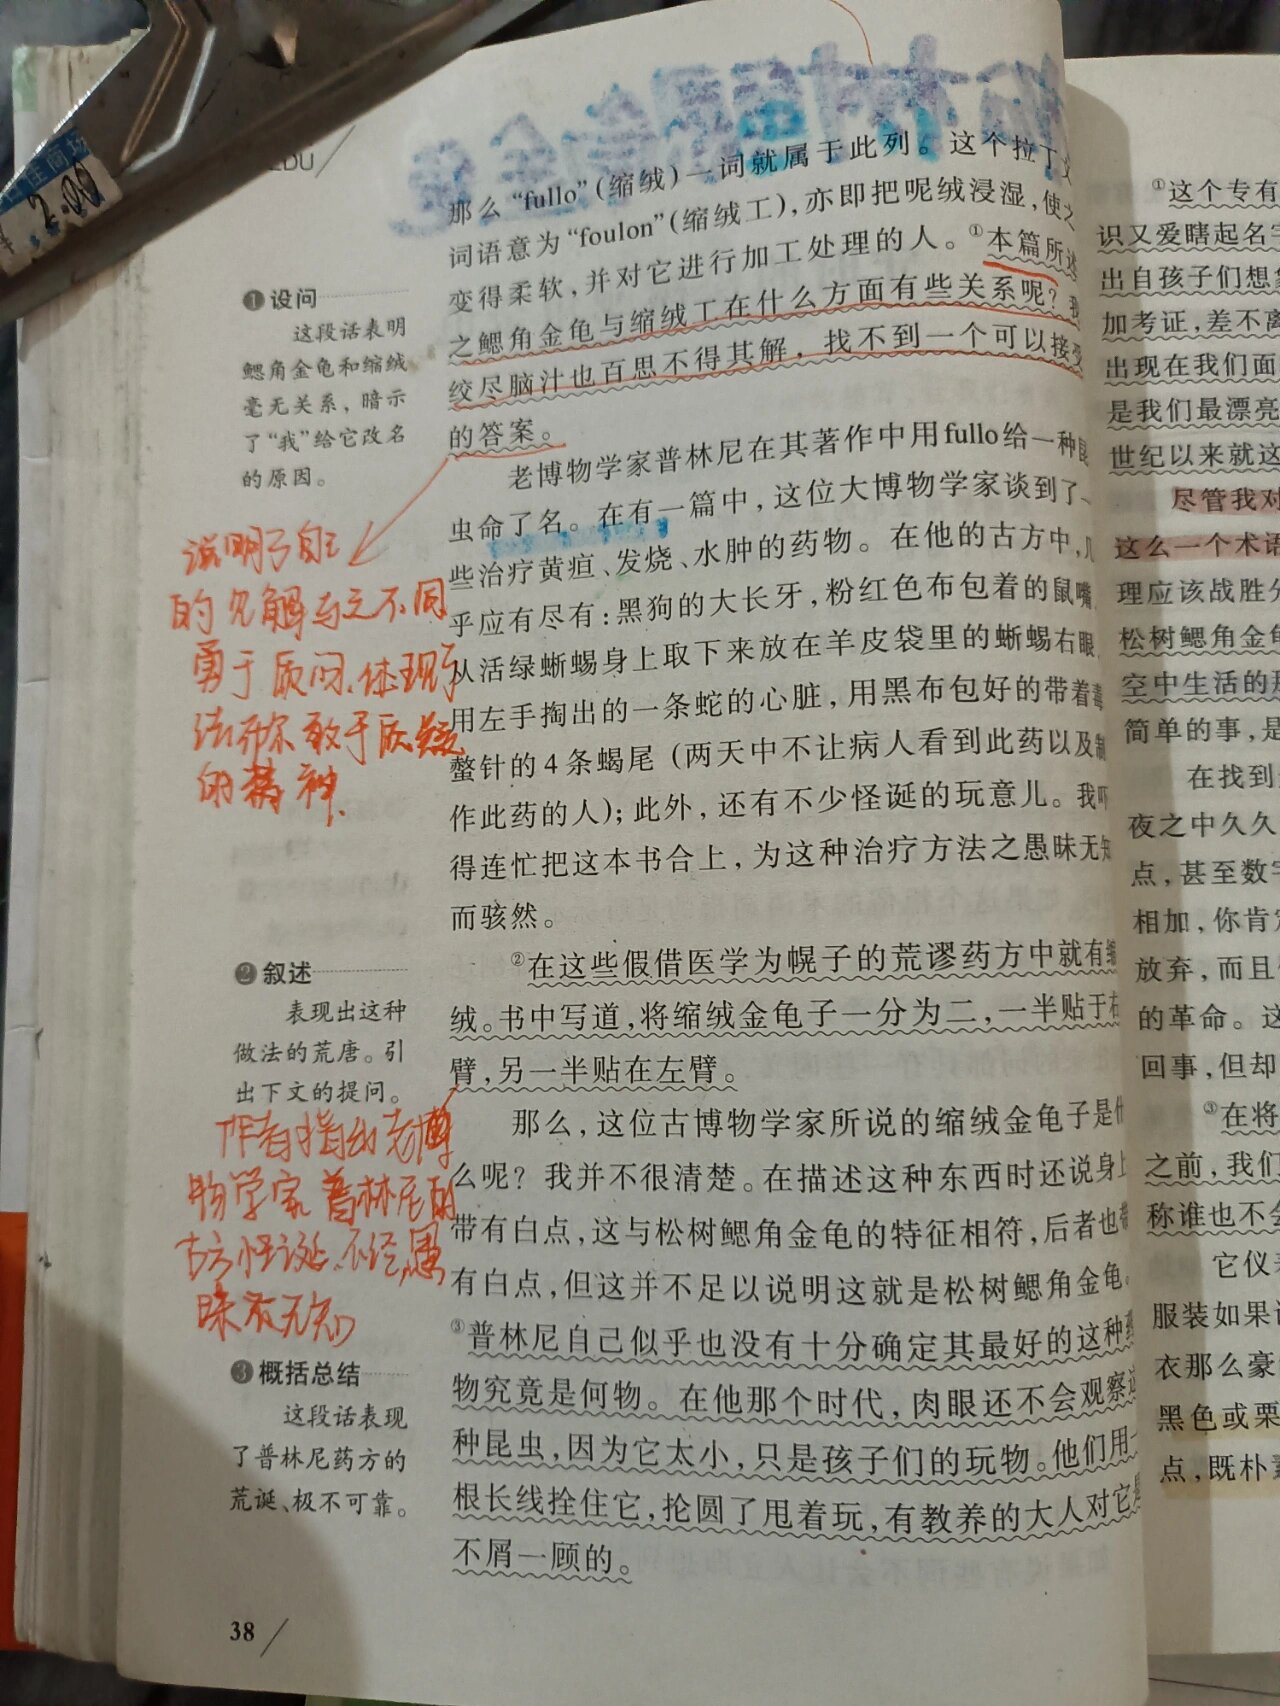 松树鳃角金龟
EDU
2.00
那么“fullo”(缩绒)一词就属于此列。这个拉丁文
词语意为“foulon”(缩绒工),亦即把呢绒浸湿,使之
变得柔软,并对它进行加工处理的人。①本篇所述
之鳃角金龟与缩绒工在什么方面有些关系呢?我
绞尽脑汁也百思不得其解，找不到一个可以接受
的答案。
老博物学家普林尼在其著作中用fullo给一种昆
虫命了名。在有一篇中，这位大博物学家谈到了一
些治疗黄疸、发烧、水肿的药物。在他的古方中,几
乎应有尽有:黑狗的大长牙,粉红色布包着的鼠嘴,
从活绿蜥蜴身上取下来放在羊皮袋里的蜥蜴右眼,
用左手掏出的一条蛇的心脏，用黑布包好的带着毒
螫针的4条蝎尾(两天中不让病人看到此药以及制
作此药的人);此外，还有不少怪诞的玩意儿。我吓
得连忙把这本书合上，为这种治疗方法之愚昧无知
而骇然。
②在这些假借医学为幌子的荒谬药方中就有缩
绒。书中写道,将缩绒金龟子一分为二,一半贴于右
臂,另一半贴在左臂。
那么,这位古博物学家所说的缩绒金龟子是什
么呢? 我并不很清楚。在描述这种东西时还说身上
带有白点,这与松树鳃角金龟的特征相符,后者也带
有白点,但这并不足以说明这就是松树鳃角金龟。
③普林尼自己似乎也没有十分确定其最好的这种药
物究竟是何物。在他那个时代,肉眼还不会观察这
种昆虫,因为它太小,只是孩子们的玩物。他们用一
根长线拴住它,抡圆了甩着玩,有教养的大人对它是
不屑一顾的。
❶设问
这段话表明
鳃角金龟和缩绒
毫无关系，暗示
了“我”给它改名
的原因。
说明了自己
的见解与之不同
勇于质问,体现了
法布尔敢于质疑
的精神.
❷叙述
表现出这种
做法的荒唐。引
出下文的提问。
作者指出老博
物学家普林尼的
古方怪诞不经,愚
昧无知
❸概括总结
这段话表现
了普林尼药方的
荒诞、极不可靠。
38
①这个专有
识又爱瞎起名字
出自孩子们想象
加考证,差不离
出现在我们面
是我们最漂亮
世纪以来就这
尽管我对
这么一个术语
理应该战胜分
松树鳃角金龟
空中生活的
简单的事,是
在找到
夜之中久久
点,甚至数字
相加,你肯定
放弃,而且
的革命。这
回事,但却
③在将
之前,我们
称谁也不会
它仪表
服装如果
衣那么豪
黑色或栗
点,既朴素